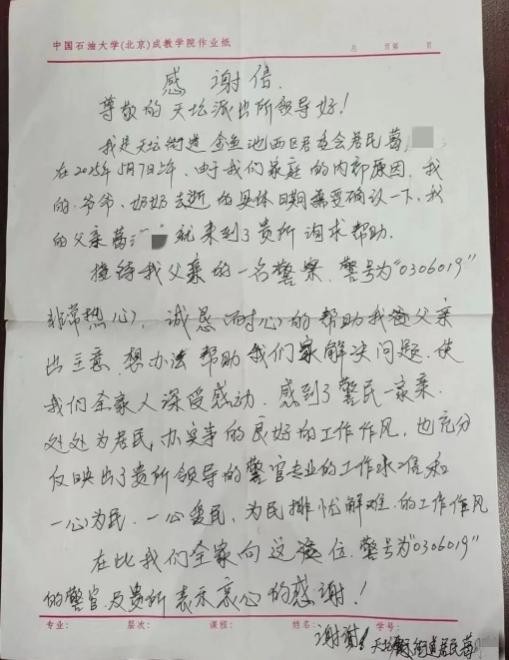 中国石油大学(北京)成教学院作业纸 总 页第 页
感谢信.
尊敬的天坛派出所领导好！
我是天坛街道金鱼池西区居委会居民葛
在2025年5月7日上午、由于我们家庭的内部原因，我
的爷爷、奶奶去逝的具体日期需要确认一下，我
的父亲葛 就来到了贵所询求帮助.
接待我父亲的一名警察.警号为"0306019"
非常热心，诚恳、耐心的帮助我父亲
出主意.想办法帮助我们家解决问题.使
我们全家人深受感动.感到了警民一家亲.
处处为居民，办实事的良好的工作作风，也充分
反映出了贵所领导的警官专业的工作水准和
一心为民.一心爱民，为民排忧解难.的工作作风
在此我们全家向这位.警号为"0306019"
的警官及贵所表示衷心的感谢！
专业： 层次： 课程： 姓名： 学号：
谢谢！天坛街道居民葛